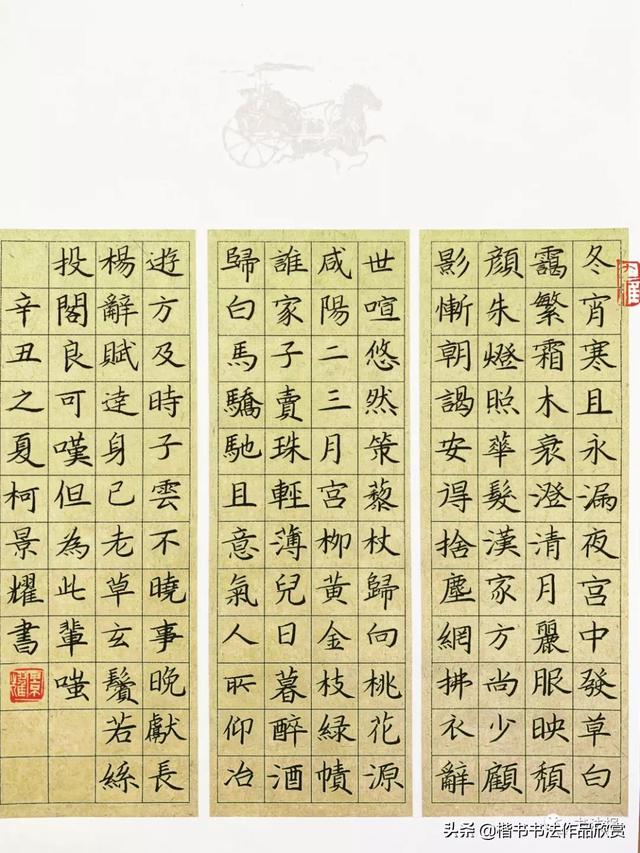 冬宵寒且永漏夜宮中發草白
靄繁霜木衰澄清月麗服映頹
顏朱燈照華髮漢家方尚少顧
影慚朝謁安得捨塵網拂衣辭
世喧悠然策藜杖歸向桃花源
咸陽二三月宮柳黃金枝綠幘
誰家子賣珠輕薄兒日暮醉酒
歸白馬驕馳且意氣人所仰冶
遊方及時子雲不曉事晚獻長
楊辭賦達身已老草玄鬢若絲
投閣良可嘆但為此輩嗤
辛丑之夏柯景耀書
景耀
头条 @楷书书法作品欣赏